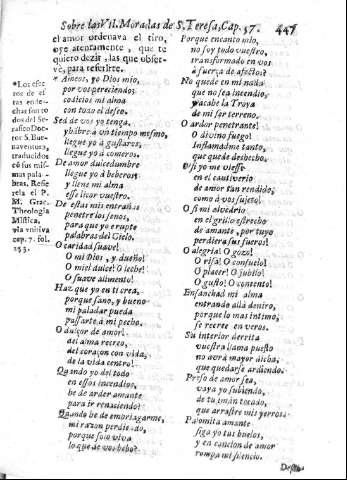 Sobre las VII. Moradas de S. Teresa, Cap. 37. 447
el amor ordenava el tiro,
oye atentamente, que te
quiero dezir, las que obser-
vè, para referirte.
* Ameos, yo Dios mio,
por vos pereciendo:
codicieos mi alma
con todo desseo.
Sed de vos yo tenga,
y hibrè à un tiempo mesmo,
llegue yo à gustaros,
llegue yo à comeros.
De amor dulcedumbre
llegue yo à beberos
y llene mi alma
esse licor vuestro.
De estas mis entrañas
penetre los senos,
para que yo erupte
palabras del Cielo.
O caridad suave!
O mi Dios, y dueño!
O miel dulce! O leche!
O suave alimento!
Haz que yo en ti crea,
porque sano, y bueno
mi paladar pueda
passarte à mi pecho.
O dulçor de amor!
del alma recreo,
del coraçon con vida,
de la vida centro!
Quando yo del todo
en essos incendios,
he de arder amante
para ir renaciendo?
Quando he de embriagarme,
mi razon perdiendo,
porque solo viva
lo que de vos bebo?
* Los efec
tos de es
tas ende-
chas son to
dos del Se-
rafico Doc-
tor S. Bue
naventura,
traducidos
cõ sus mis-
mas pala-
bras. Refie
rela el P.
M. Grac.
Theologia
Mistica,
y la vnitiva
cap. 7. fol.
253.
Porque encanto mio,
no soy todo vuestro,
transformado en vos
à fuerça de afectos?
No quede en mi nada
que no sea incendio,
y acabe la Troya
de mi ser terreno.
O ardor penetrante!
O divino fuego!
Inflamadme tanto,
que quede deshecho.
O si yo me viesse
en el cautiverio
de amor tan rendido,
como à vos sujeto!
O si mi alvedrio
en el grillo estrecho
de amante, por tuyo
perdiera sus fueros!
O alegria! O gozo!
O risa! O consuelo!
O placer! O jubilo!
O gusto! O contento!
Ensanchad mi alma
entrando allà dentro,
porque lo mas intimo,
se recree en veros.
Su interior derrita
vuestra llama puesto
no avrà mayor dicha,
que quedarse ardiendo.
Preso de amor sea,
vaya yo subiendo,
de tu imàn tocado,
que arrastre mis yerros.
Palomita amante
siga yo tus buelos,
y en cancion de amor
rompa mi silencio.